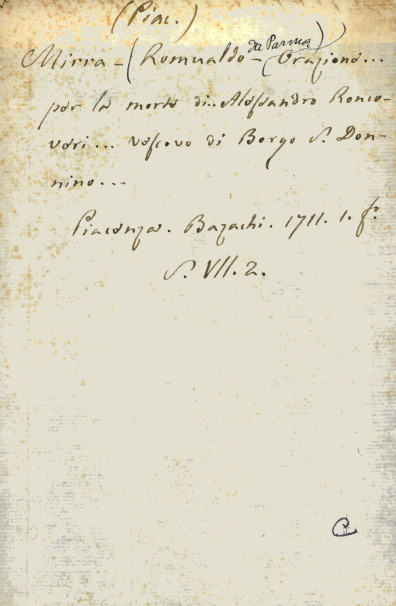 (Piac.)
Mirra - (Romualdo da Parma) - (Orazione...
per la morte di.. Alessandro Ronco-
veri... vescovo di Borgo S. Don-
nino...
Piacenza. Bazachi. 1711. 1. fº
S. VII. 2.